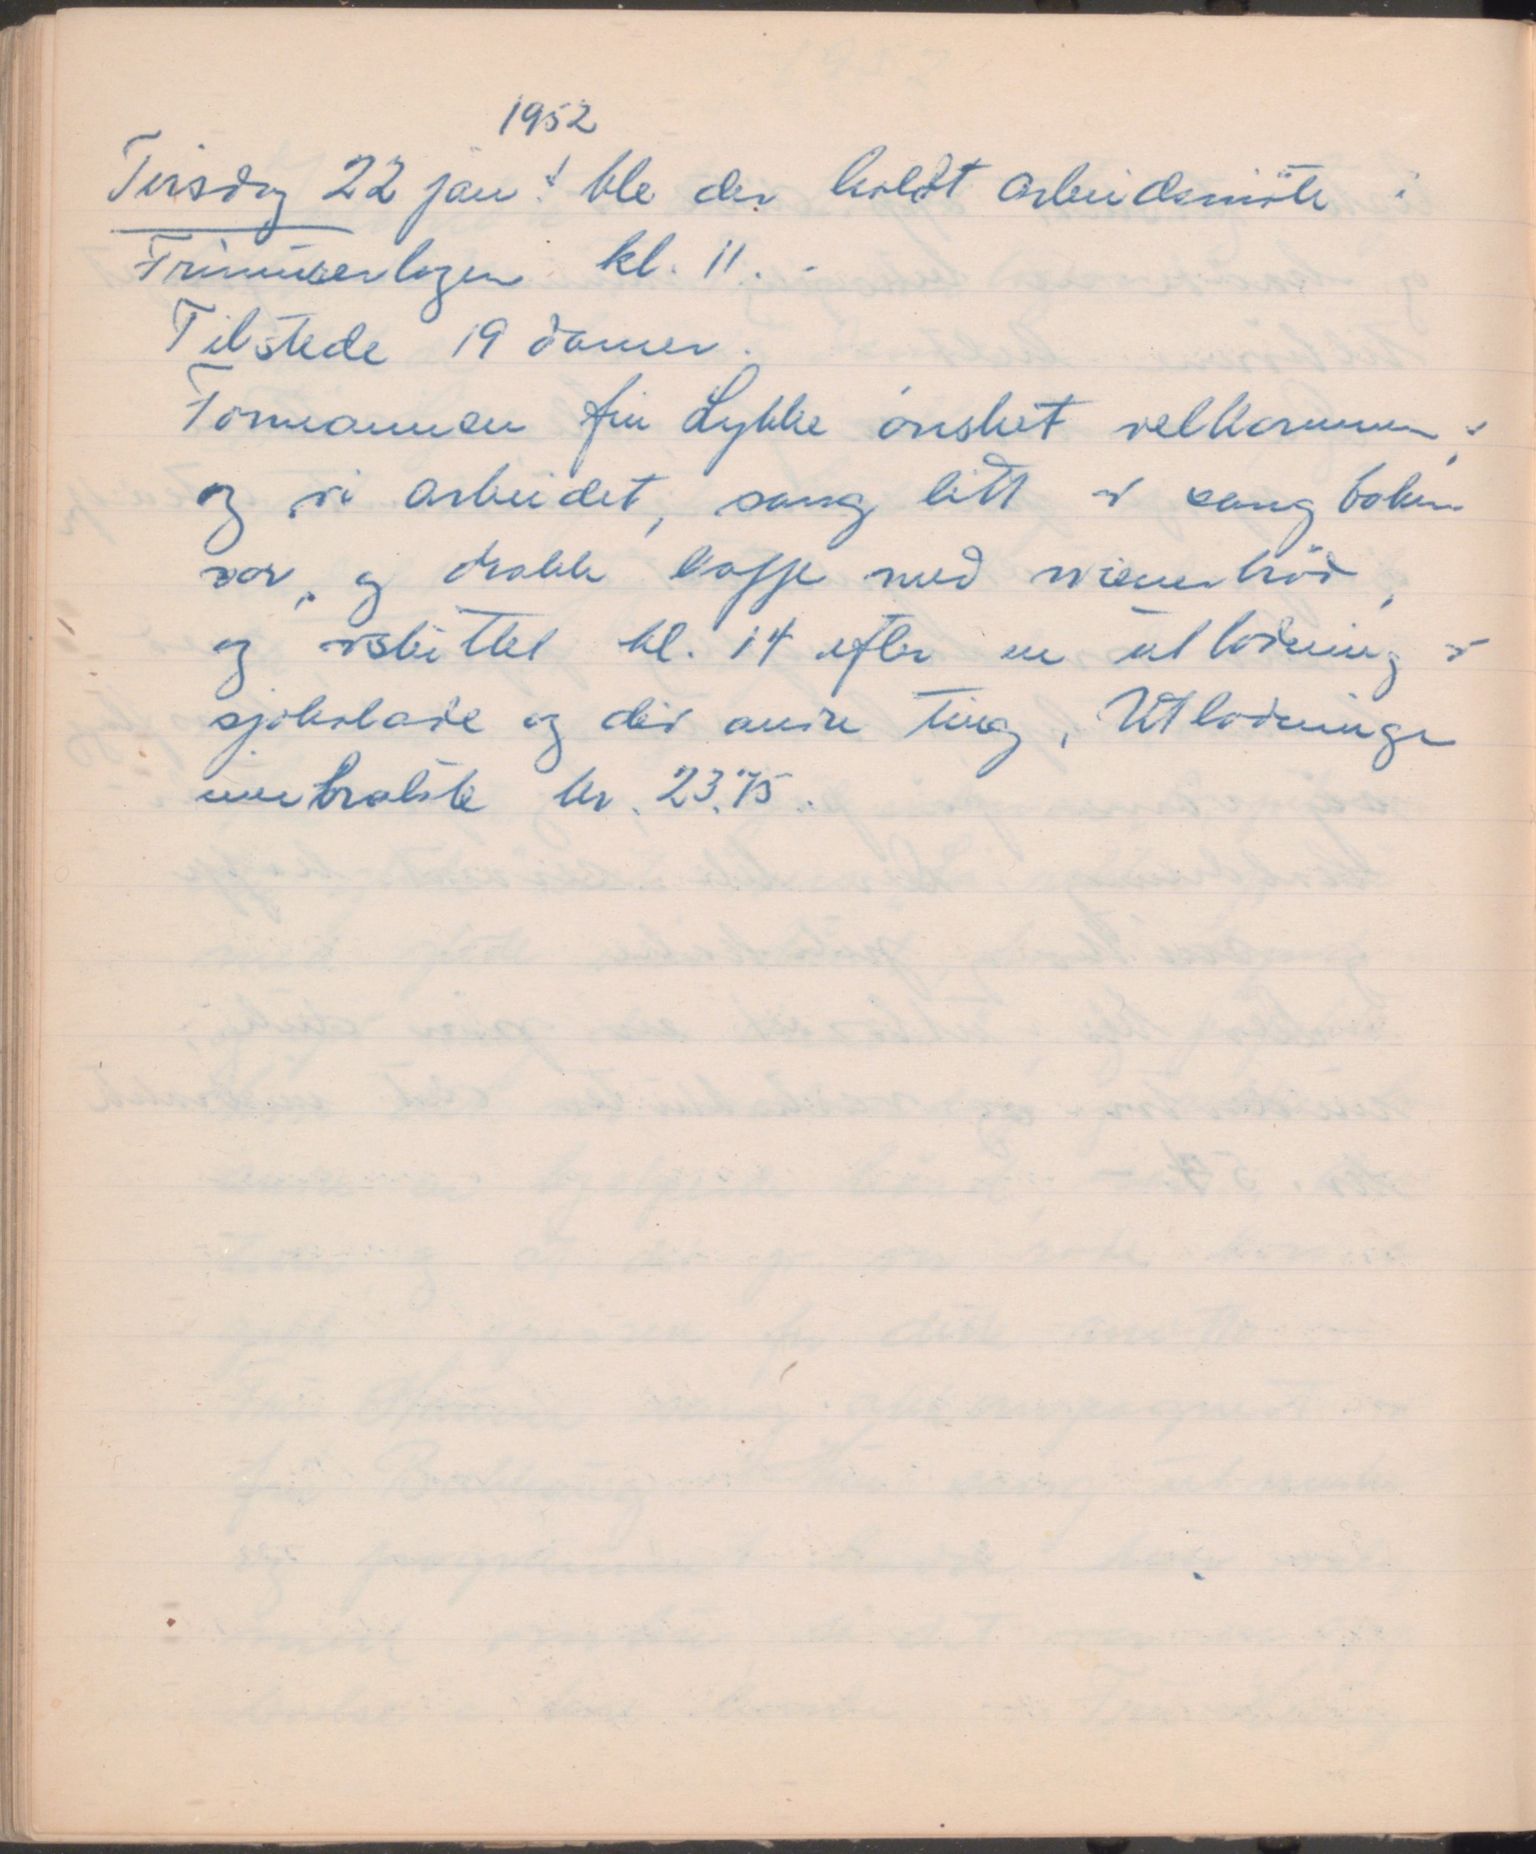 1952
Tirsdag 22 jan. ble der holdt arbeidsmöte i
Frimurerlogen kl. 11.
Tilstede 19 damer.
Formannen fru Lykke ønsket velkommen,
og vi arbeidet, sang litt av sangboken
vor, og drakk kaffe med wienerbröd,
og sluttet kl. 14 efter en utlodning av
sjokolade og div andre ting. Utlodningen
innbrakte kr. 23.75.